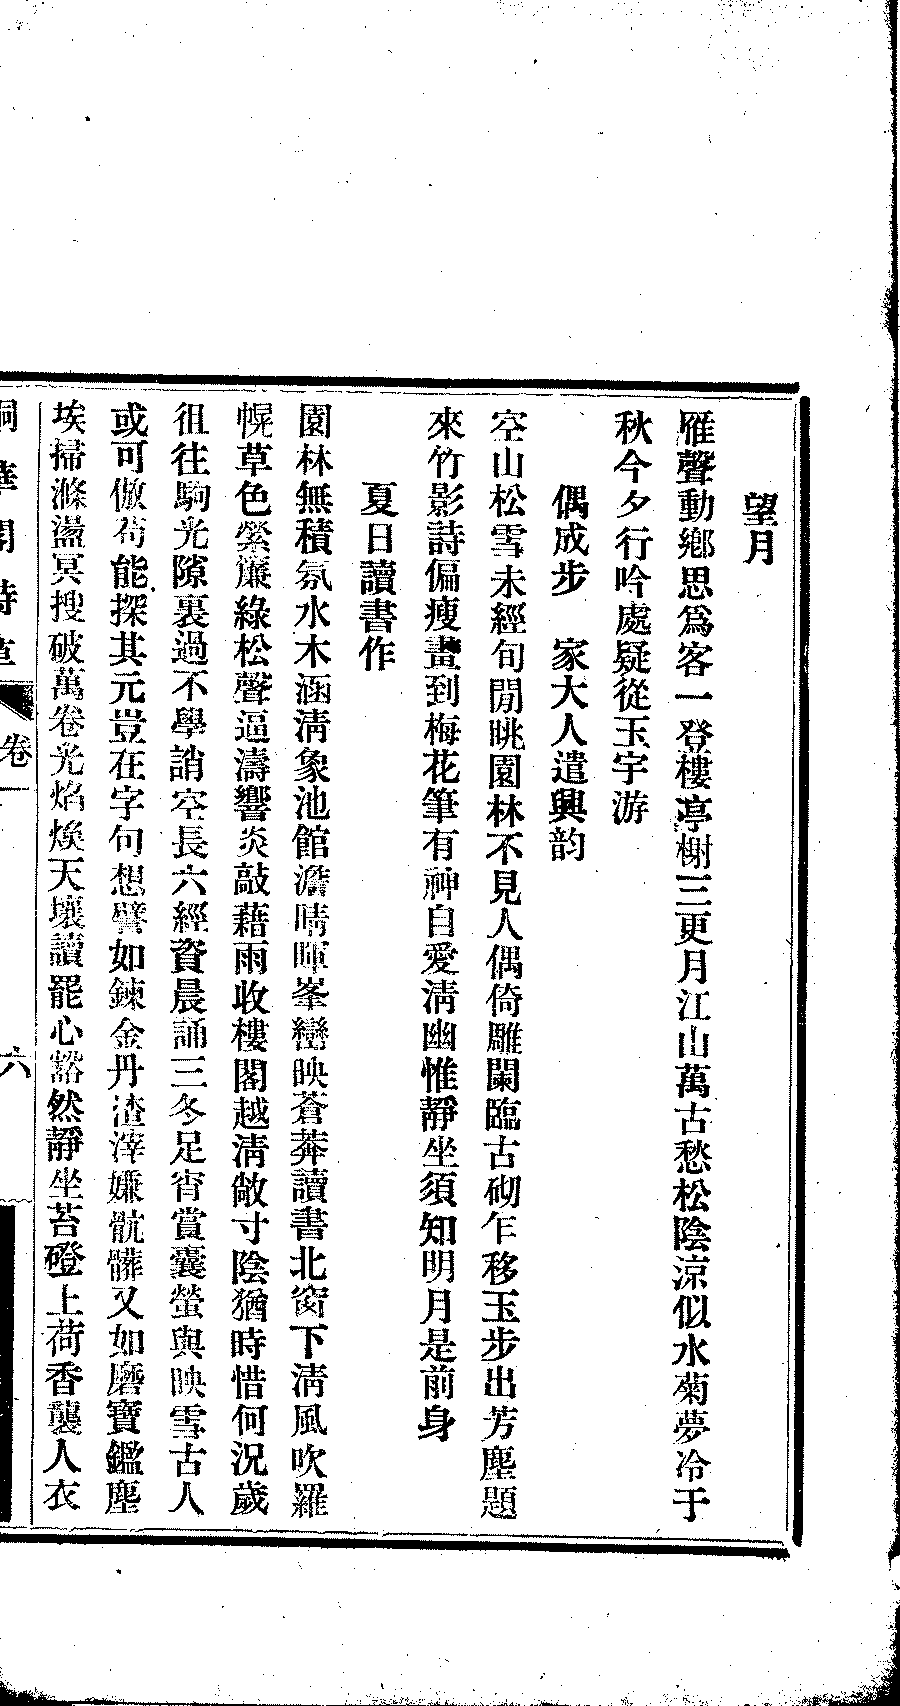 望月
雁聲動鄉思爲客一登樓亭榭三更月江山萬古愁松陰涼似水菊夢冷于
秋今夕行吟處疑從玉宇游
偶成步　家大人遣興韵
空山松雪未經旬閒眺園林不見人偶倚雕闌臨古砌乍移玉步出芳塵題
來竹影詩偏瘦畫到梅花筆有神自愛清幽惟靜坐須知明月是前身
夏日讀書作
園林無積氛水木涵清象池館澹晴暉峯巒映蒼莽讀書北窗下清風吹羅
幌草色縈簾綠松聲逼濤響炎敲藉雨收樓閣越清敞寸陰猶時惜何況歲
徂往駒光隙裏過不學誚空長六經資晨誦三冬足宵賞囊螢與映雪古人
或可倣苟能探其元豈在字句想譬如鍊金丹渣滓嫌骯髒又如磨寶鑑塵
埃掃滌盪冥搜破萬卷光焰煥天壤讀罷心豁然靜坐苔磴上荷香襲人衣
桐華閣詩草
卷一
六